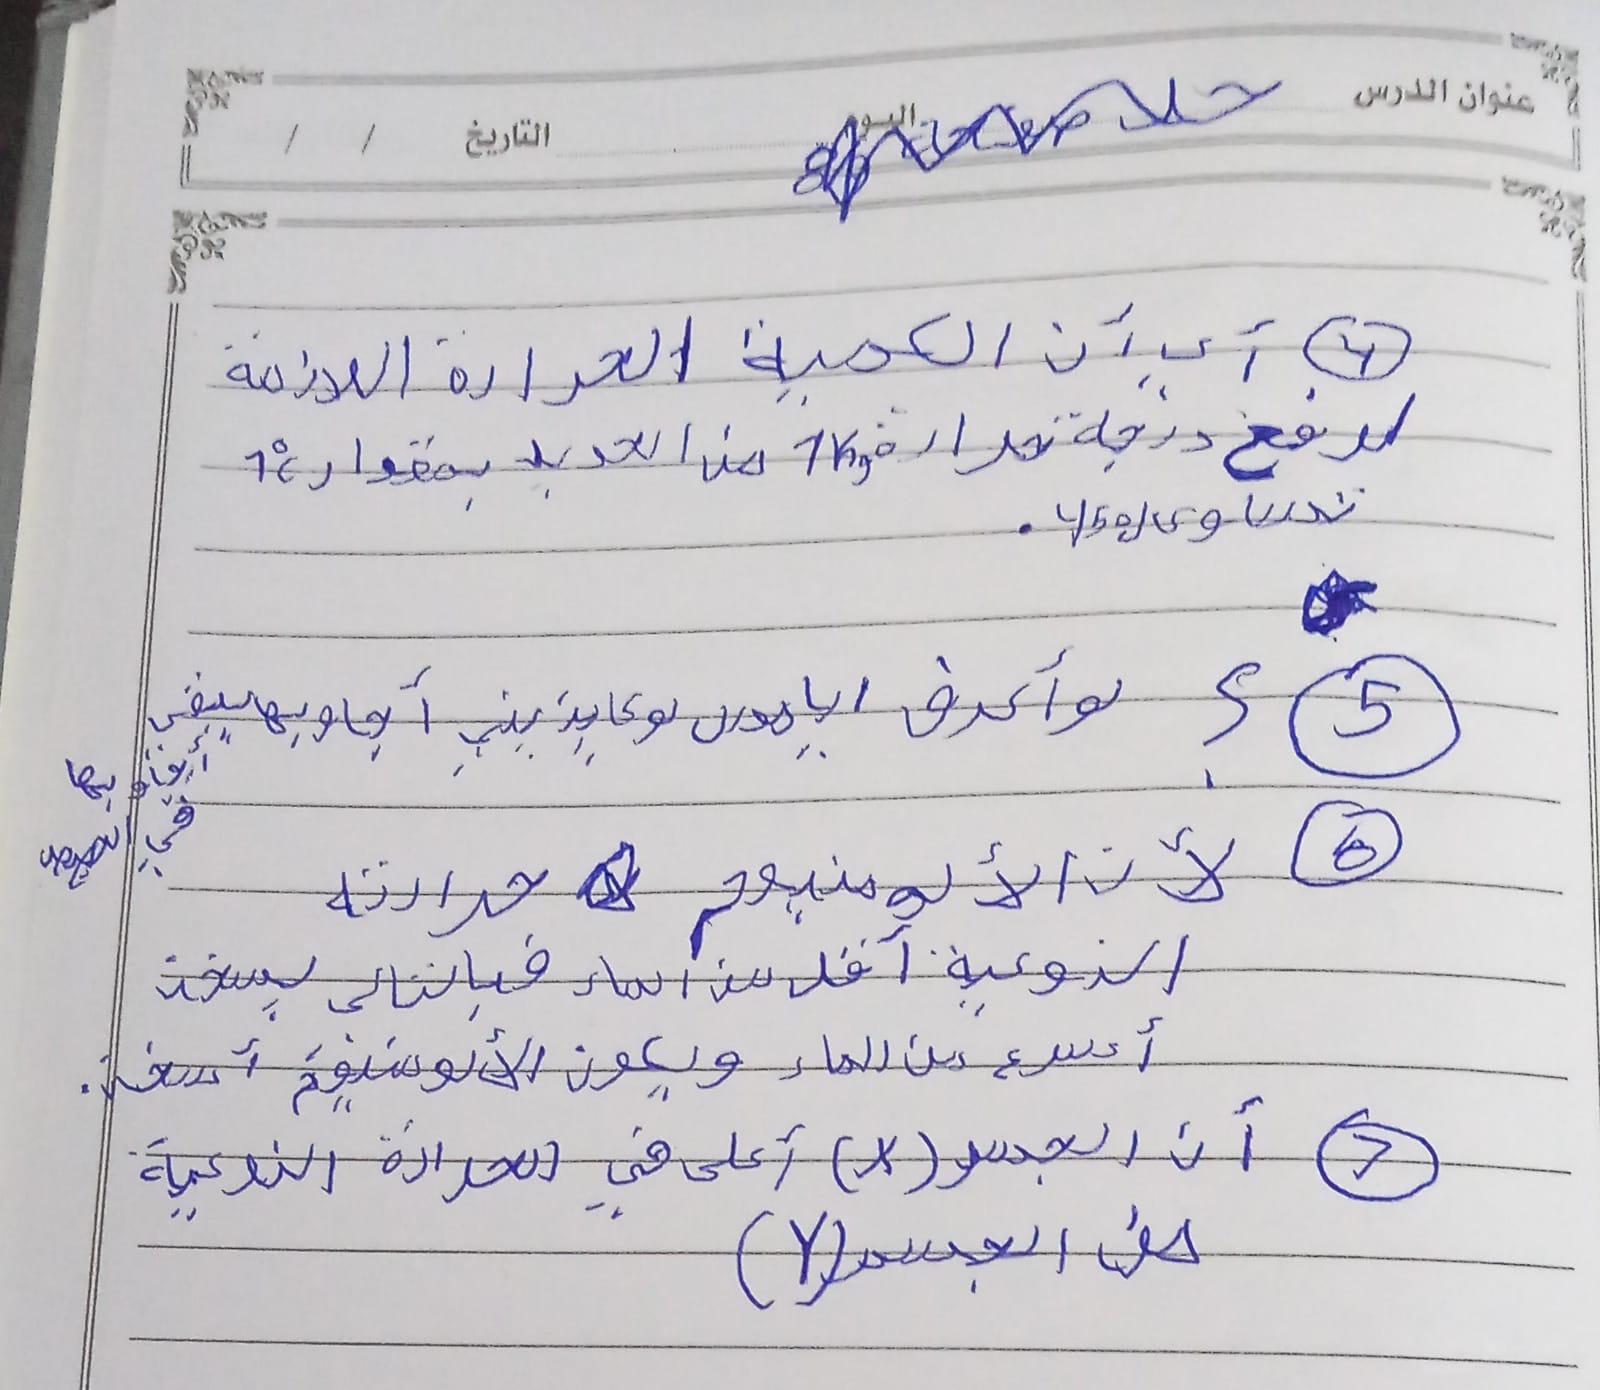 عنوان الدرس حل
اليوم
التاريخ / /
④ أي أن الكمية الحرارة اللازمة
لرفع درجة حرارة 1kg من الحديد بمقدار 1°c
تساوي 450J.
⑤ ؟ لو أعرف
أجاوبها
في
⑥ لأن الألومنيوم حرارته
النوعية أقل من الماء فبالتالي يسخن
أسرع من الماء ويكون الألومنيوم أسخن.
⑦ أن الجسم (X) أعلى في الحرارة النوعية
من الجسم (Y)